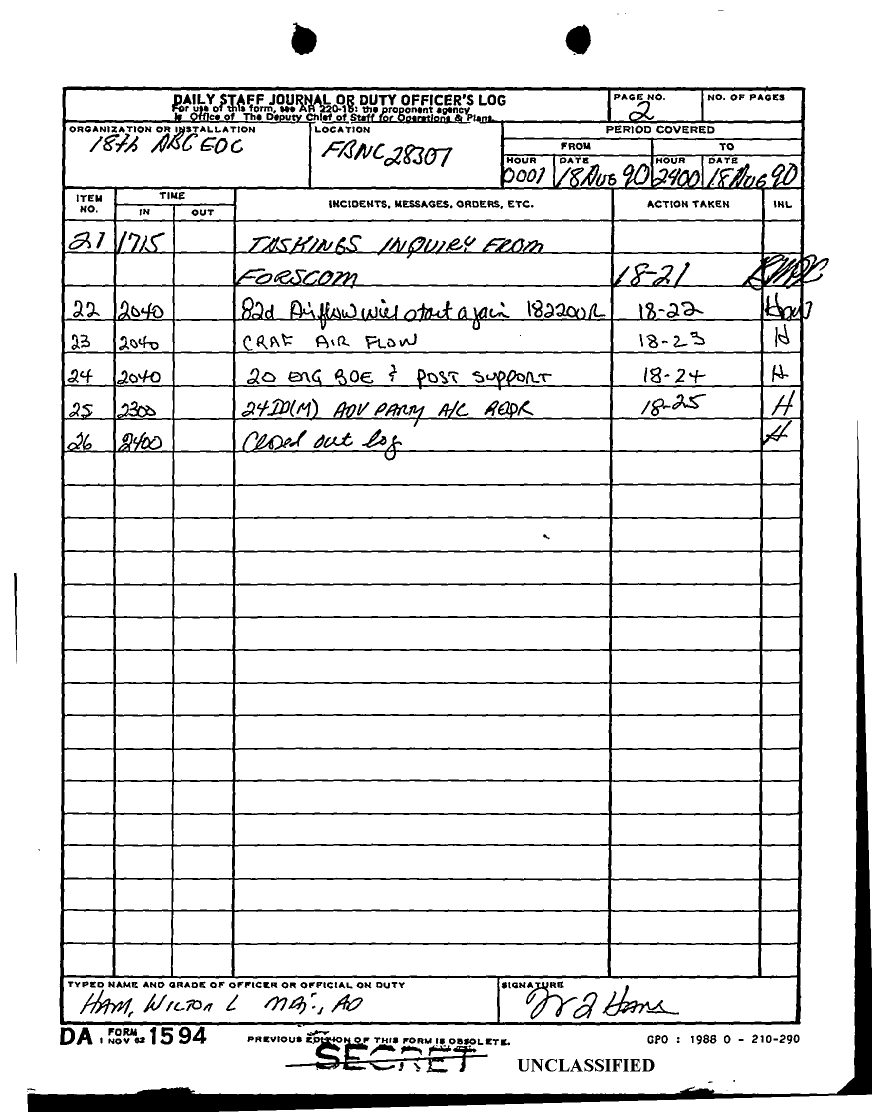 DAILY STAFF JOURNAL OR DUTY OFFICER'S LOG
For use of this form, see AR 220-15: the proponent agency
is Office of The Deputy Chief of Staff for Operations & Plans.
PAGE NO.
2
NO. OF PAGES
ORGANIZATION OR INSTALLATION
18th ABC EOC
LOCATION
FBNC 28307
PERIOD COVERED
FROM
TO
HOUR
0001
DATE
18 Aug 90
HOUR
2400
DATE
18 Aug 90
ITEM NO.
TIME
IN
OUT
INCIDENTS, MESSAGES, ORDERS, ETC.
ACTION TAKEN
INL
21 1715 TASKINGS INQUIRY FROM
FORSCOM 18-21
22 2040 82d Airflow will start again 182200R 18-22 Ham
23 2040 CRAF AIR FLOW 18-23 H
24 2040 20 ENG BDE & POST SUPPORT 18-24 H
25 2300 24ID(M) ADV PARTY A/C 18-25 H
26 2400 Closed out log H
TYPED NAME AND GRADE OF OFFICER OR OFFICIAL ON DUTY
HAM, WILTON L MAJ., AO
SIGNATURE
W L Ham
DA FORM 1 NOV 62 1594
PREVIOUS EDITION OF THIS FORM IS OBSOLETE.
GPO : 1988 O - 210-290
SECRET
UNCLASSIFIED